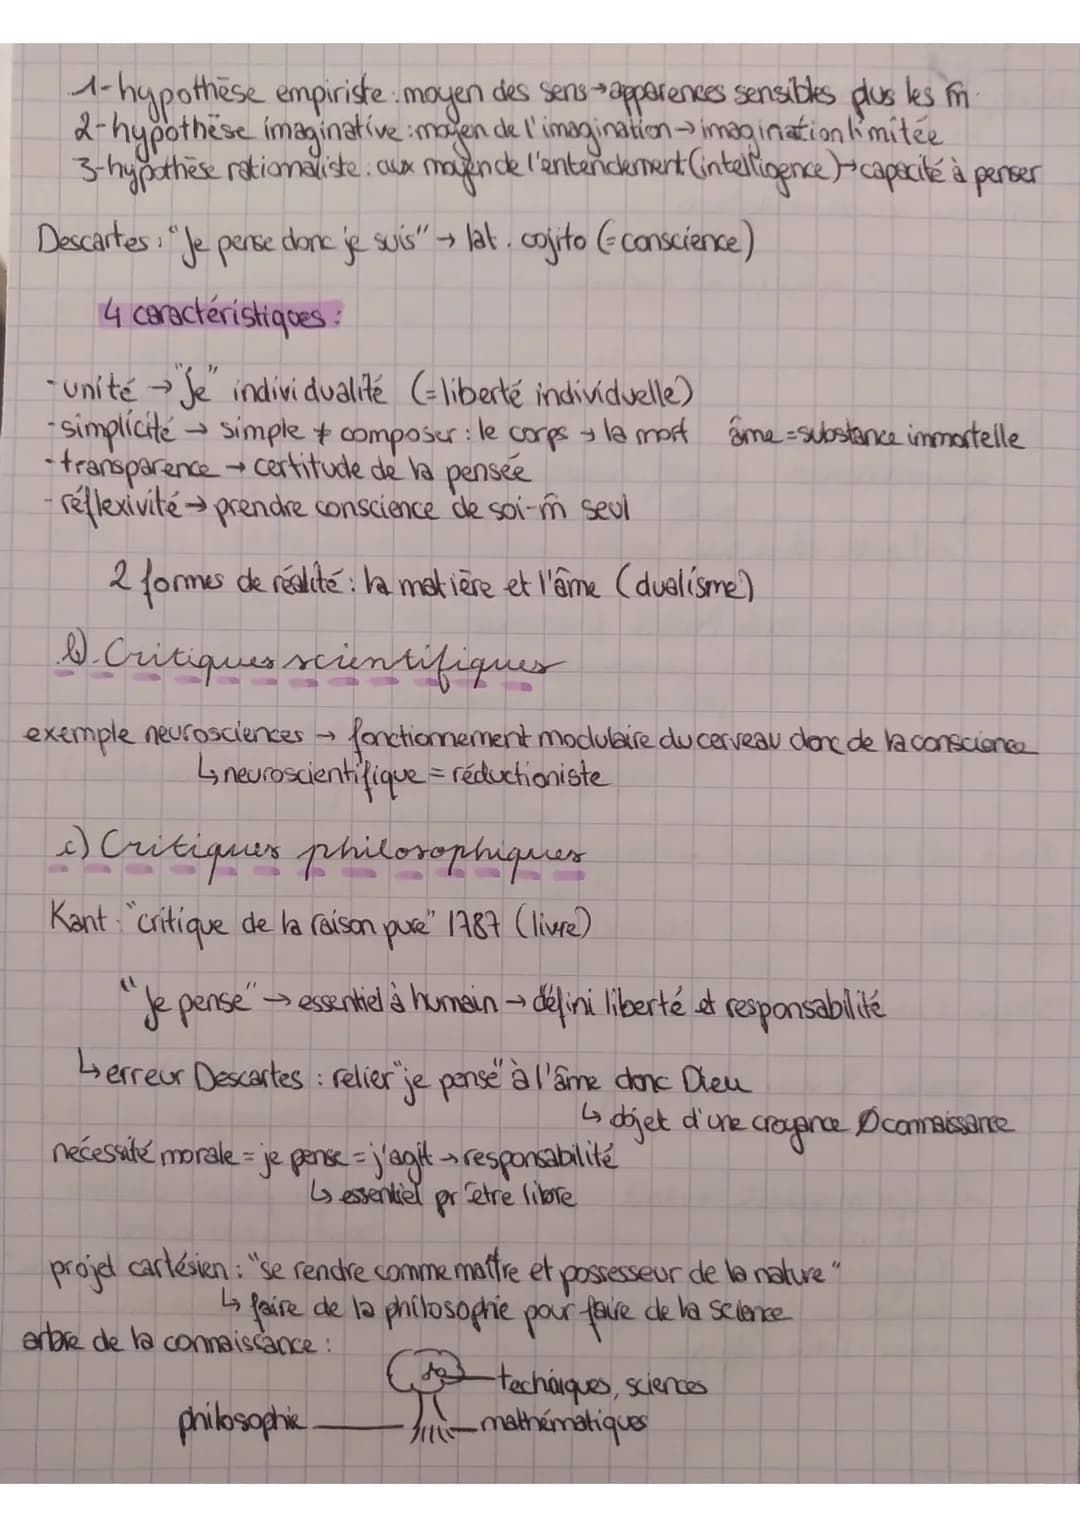 1-hypothèse empiriste : moyen des sens → apparences sensibles plus les m̄
2-hypothèse imaginative : moyen de l'imagination → imagination limitée
3-hypothèse rationnaliste : aux moyen de l'entendement (intelligence) → capacité à penser
Descartes : "Je pense donc je suis" → lat. cojito (=conscience)
4 caractéristiques :
-unité → "Je" individualité (=liberté individuelle)
-simplicité → simple ≠ composer : le corps → la mort âme = substance immortelle
-transparence → certitude de la pensée
-réflexivité → prendre conscience de soi-m̄ seul
2 formes de réalité : la matière et l'âme (dualisme)
b). Critiques scientifiques
exemple neurosciences → fonctionnement modulaire du cerveau donc de la conscience
↳ neuroscientifique = réductioniste
c) Critiques philosophiques
Kant : "critique de la raison pure" 1787 (livre)
"Je pense" → essentiel à humain → défini liberté et responsabilité
↳ erreur Descartes : relier "je pense" à l'âme donc Dieu
↳ objet d'une croyance Ø connaissance
nécessité morale = je pense = j'agit → responsabilité
↳ essentiel pr être libre
projet cartésien : "se rendre comme maître et possesseur de la nature"
↳ faire de la philosophie pour faire de la science
arbre de la connaissance :
techniques, sciences
philosophie mathématiques